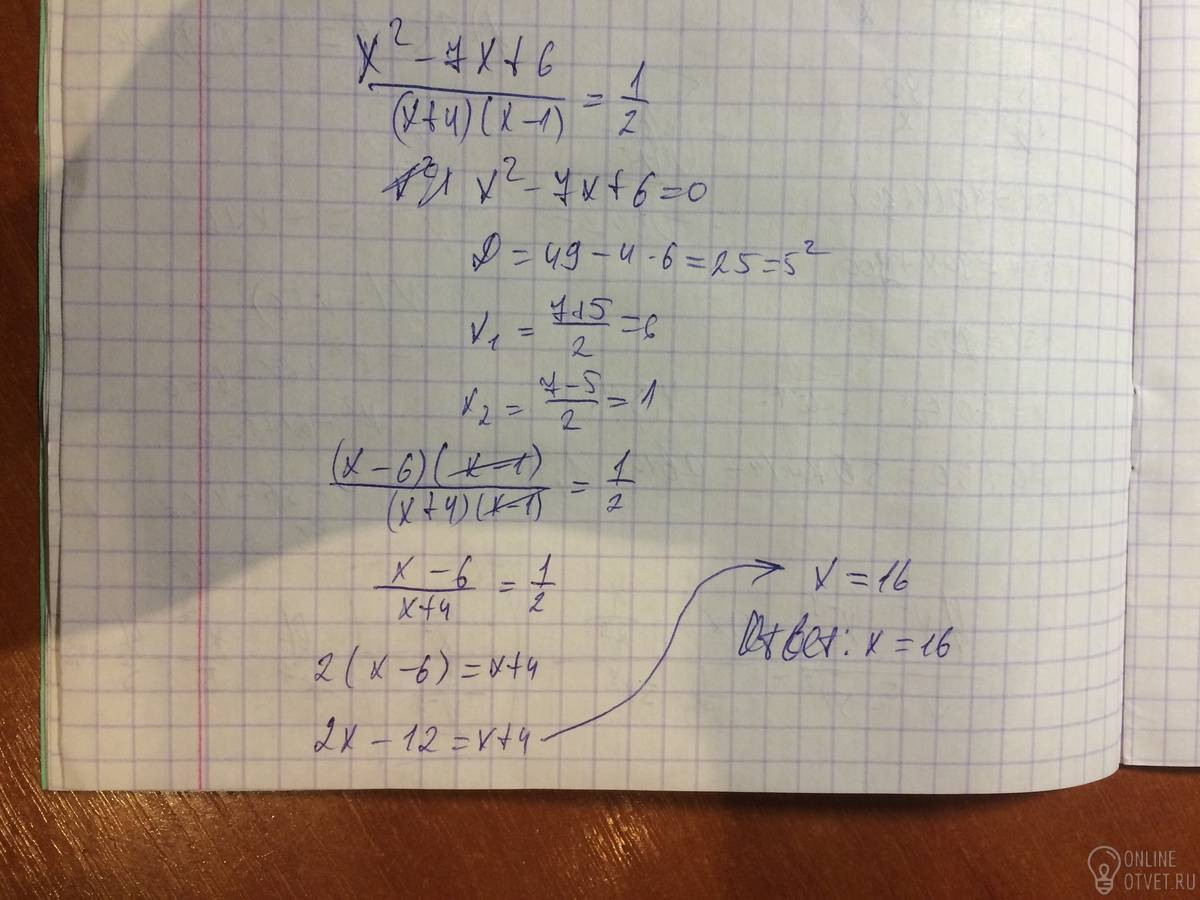 x² - 7x + 6
/ (x+4)(x-1) = 1/2
x² - 7x + 6 = 0
D = 49 - 4 · 6 = 25 = 5²
x₁ = (7+5)/2 = 6
x₂ = (7-5)/2 = 1
(x-6)(x-1) / (x+4)(x-1) = 1/2
(x-6)/(x+4) = 1/2
2(x-6) = x+4
2x - 12 = x+4
x = 16
Ответ: x = 16
ONLINE
OTVET.RU